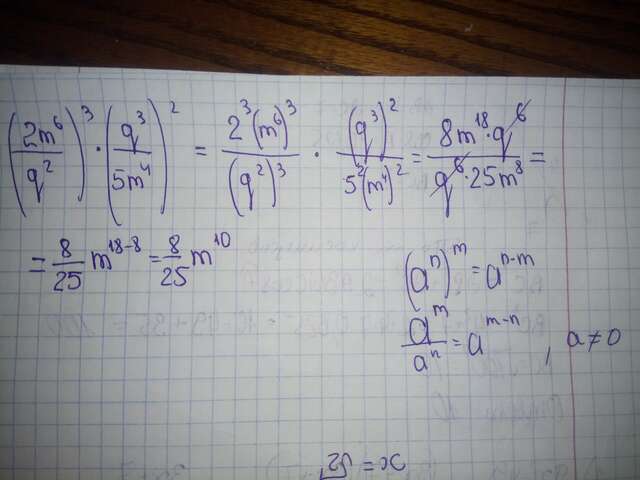 (2m⁶/q²)³ · (q³/5m⁴)² = 2³(m⁶)³/(q²)³ · (q³)²/5²(m⁴)² = 8m¹⁸·q⁶/q⁶·25m⁸ =
= 8/25 m¹⁸⁻⁸ = 8/25 m¹⁰
(aⁿ)ᵐ = aⁿ⁻ᵐ
aᵐ/aⁿ = aᵐ⁻ⁿ , a ≠ 0